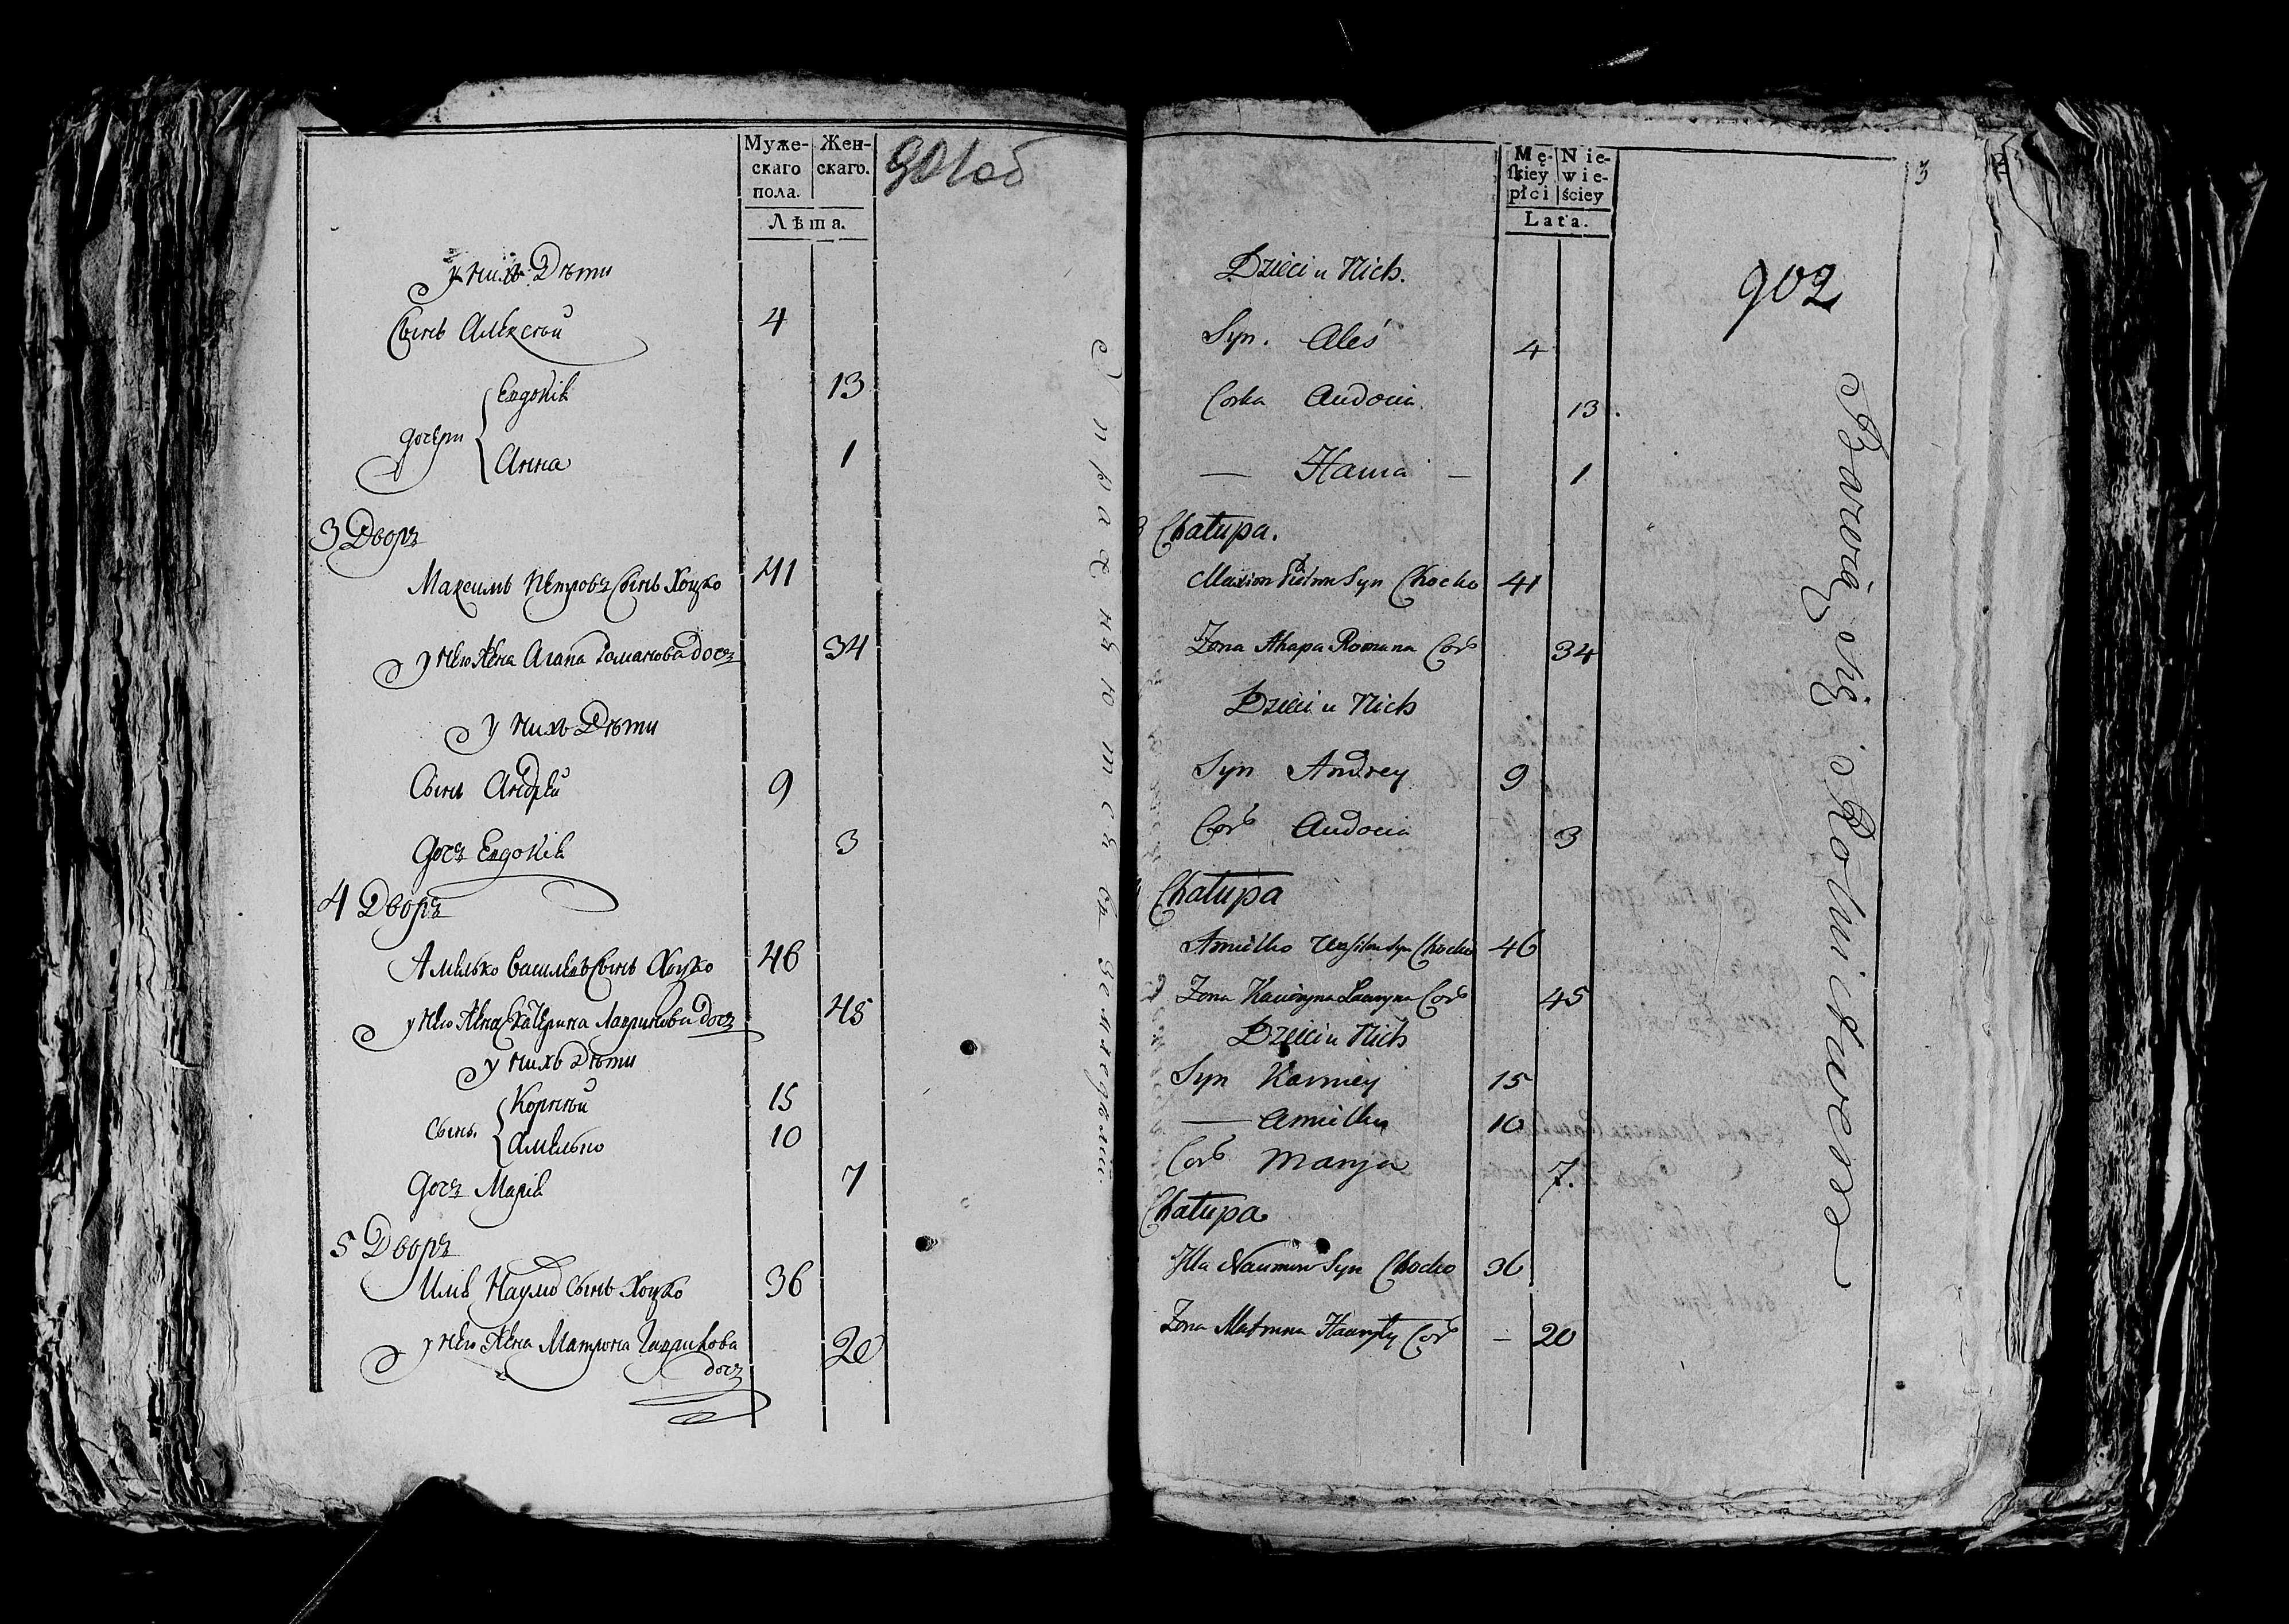 Муже-
скаго
пола.
Жен-
скаго.
Лѣта.
901 об
у нихъ Дѣти
Сынъ Алексѣй 4
дочери
Евдокія 13
Анна 1
3 Дворъ
Максимъ Петровъ Сынъ Хоцко 41
у него Жена Агапа Романова дочь 34
у нихъ Дѣти
Сынъ Андрей 9
Дочь Евдокія 3
4 Дворъ
Амелько Василевъ Сынъ Хоцко 46
у него Жена Катерина Лавринова дочь 45
у нихъ Дѣти
Сынъ.
Корнѣй 15
Амелько 10
Дочь Марія 7
5 Дворъ
Илія Наумовъ Сынъ Хоцко 36
у него Жена Матрона Гаврилова 20
дочь
Упражняются въ земледѣліи.
Mę-
ſkiey
płci
Nie-
wie-
ściey
Lata.
3
902
Dzieci u Nich.
Syn. Aleś 4
Corka Audocia 13.
— Hanna — 1
3 Chałupa.
Maxim Piotrow Syn Chocko 41
Zona Ahapa Romana Cor 34
Dzieci u Nich
Syn Andrey 9
Cor Audocia 3
Chałupa
Amielko Wasilew Syn Chocko 46
Zona Kacieryna Lauryna Cor 45
Dzieci u Nich
Syn Karniey 15
— Amielko 10
Cor Marya 7.
Chałupa
Illa Naumow Syn Chocko 36
Zona Matruna Hauryły Cor — 20
Bawią się Rolnictwem